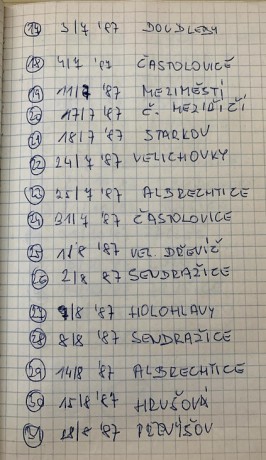 17 3/7 '87 DOUDLEBY
18 4/7 '87 ČASTOLOVICE
19 11/7 '87 MEZIMĚSTÍ
20 17/7 '87 Č. MEZIŘÍČÍ
21 18/7 '87 STARKOV
22 24/7 '87 VELICHOVKY
23 25/7 '87 ALBRECHTICE
24 31/7 '87 ČASTOLOVICE
25 1/8 '87 VEL. DŘEVÍČ
26 2/8 87 SENDRAŽICE
27 7/8 '87 HOLOHLAVY
28 8/8 '87 SENDRAŽICE
29 14/8 '87 ALBRECHTICE
30 15/8 '87 HRUŠOVÁ
31 /8 '87 PŘEVÝŠOV